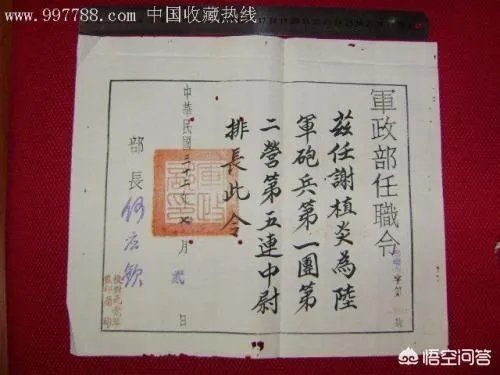 www.997788.com 中国收藏热线
軍政部任職令
茲任謝植炎為陸
軍砲兵第一團第
二營第五連中尉
排長此令
中華民國三十二年七月貳日
部長何应欽
悟空问答